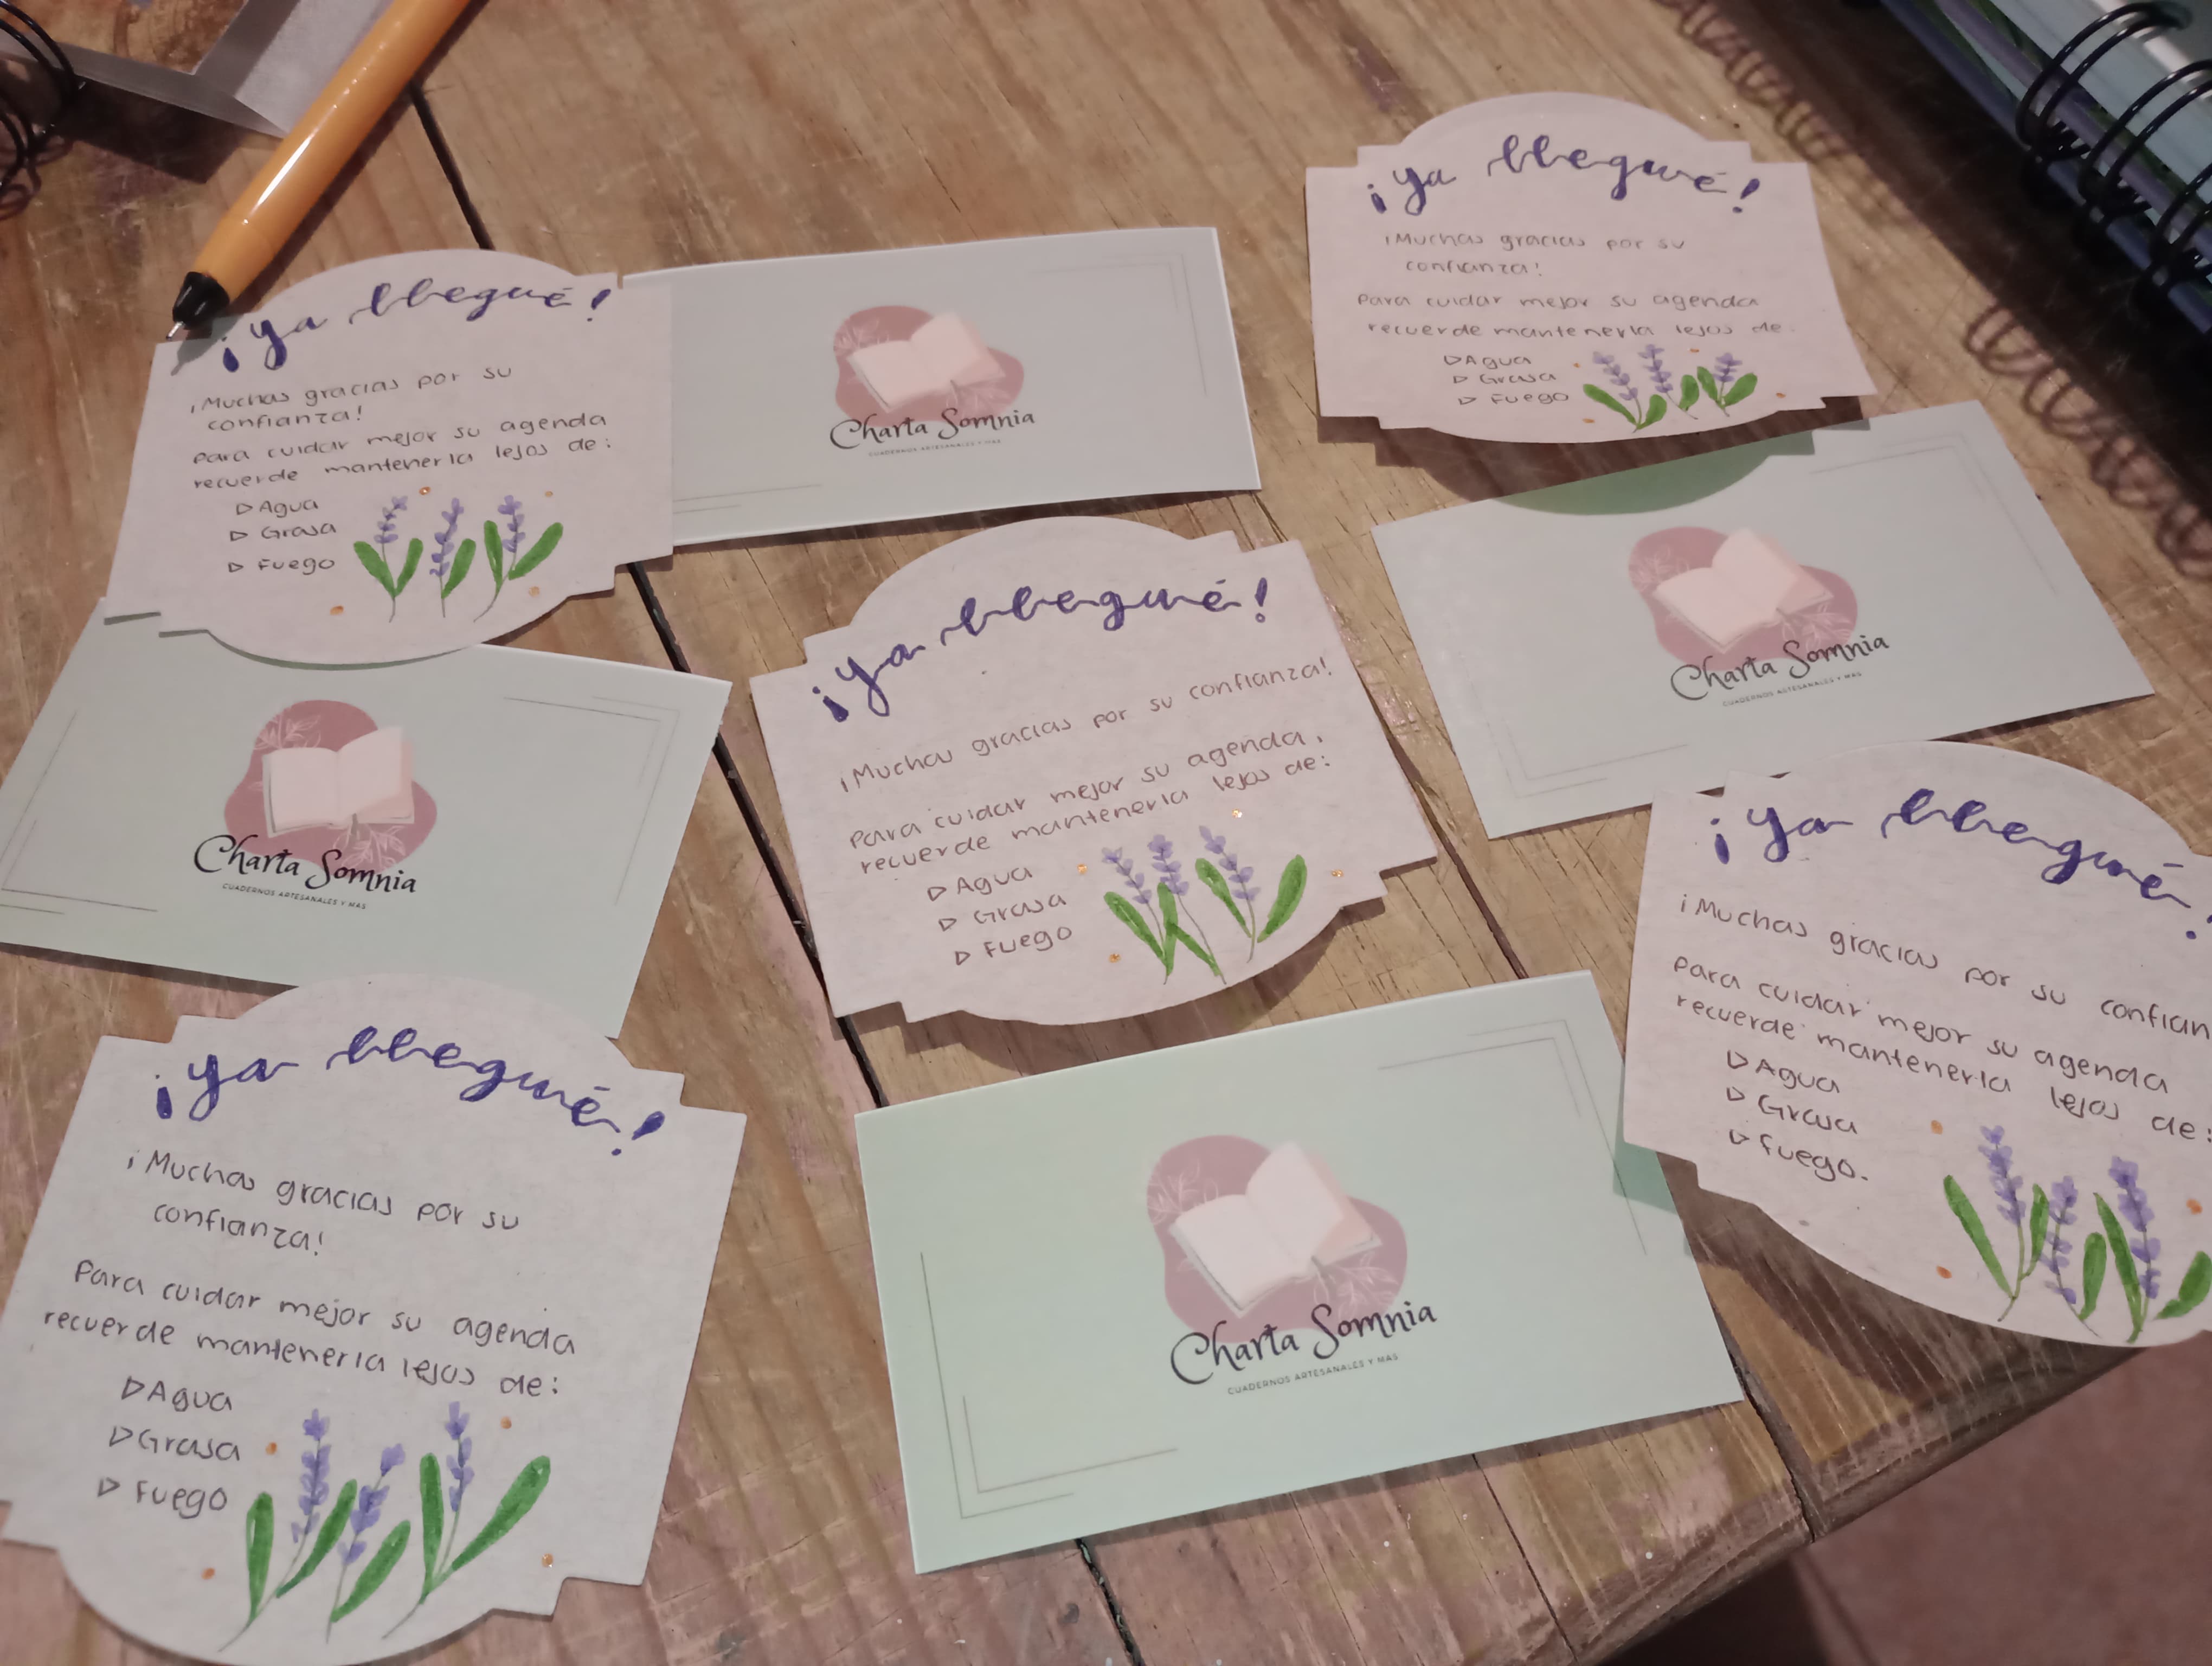 ¡Ya llegué!
¡Muchas gracias por su
confianza!
Para cuidar mejor su agenda
recuerde mantenerla lejos de:
Agua
Grasa
Fuego
Charta Somnia
CUADERNOS ARTESANALES Y MAS
¡Ya llegué!
¡Muchas gracias por su
confianza!
Para cuidar mejor su agenda
recuerde mantenerla lejos de:
Agua
Grasa
Fuego
Charta Somnia
CUADERNOS ARTESANALES Y MAS
¡Ya llegué!
¡Muchas gracias por su confianza!
Para cuidar mejor su agenda,
recuerde mantenerla lejos de:
Agua
Grasa
Fuego
Charta Somnia
CUADERNOS ARTESANALES Y MAS
¡Ya llegué!
¡Muchas gracias por su confian
Para cuidar mejor su agenda
recuerde mantenerla lejos de:
Agua
Grasa
Fuego.
¡Ya llegué!
¡Muchas gracias por su
confianza!
Para cuidar mejor su agenda
recuerde mantenerla lejos de:
Agua
Grasa
Fuego
Charta Somnia
CUADERNOS ARTESANALES Y MAS